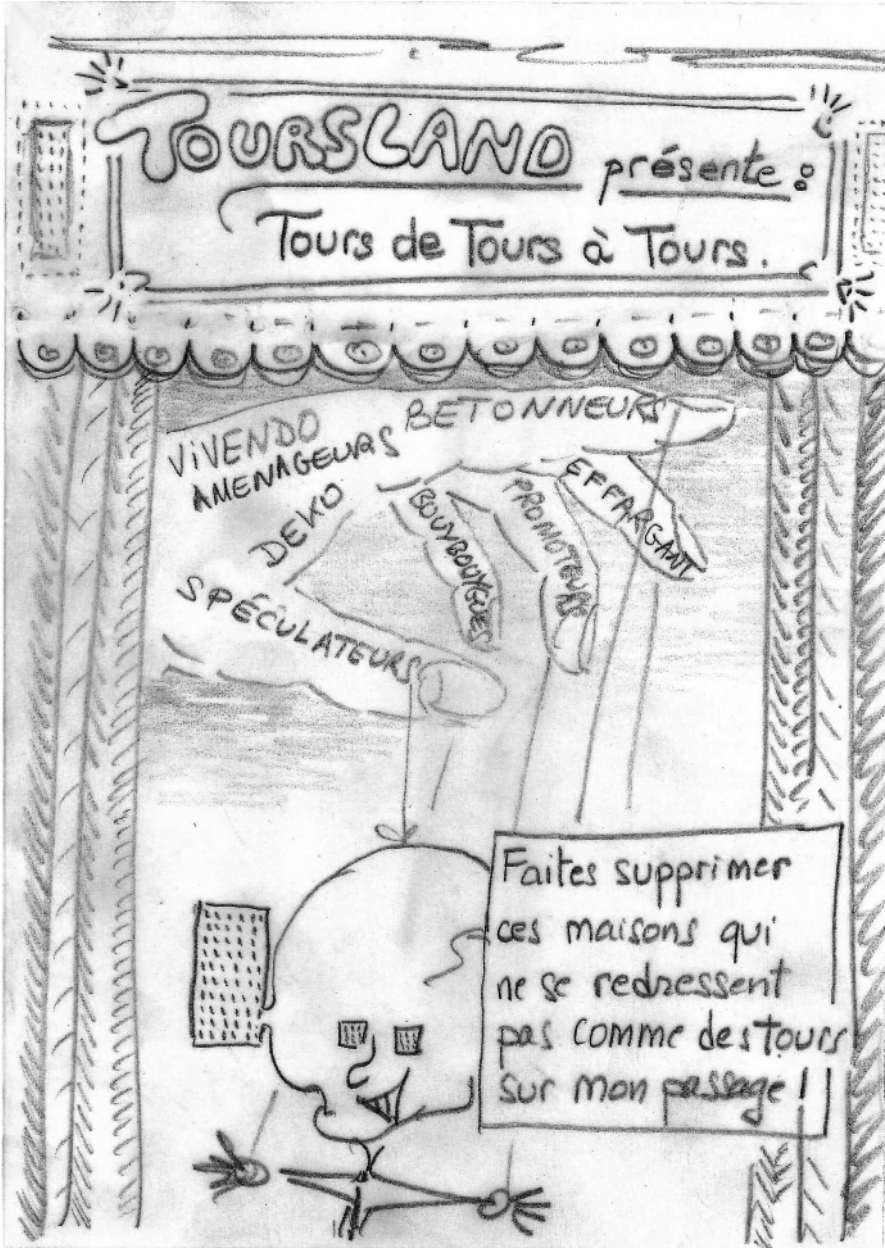 TOURSLAND présente :
Tours de Tours à Tours.
BETONNEURS
VIVENDO
AMENAGEURS
DEKO
BOUYBOUYGUES
PROMOTEURS
EFFARGANT
SPÉCULATEURS
Faites supprimer
ces maisons qui
ne se redressent
pas comme des tours
sur mon passage !